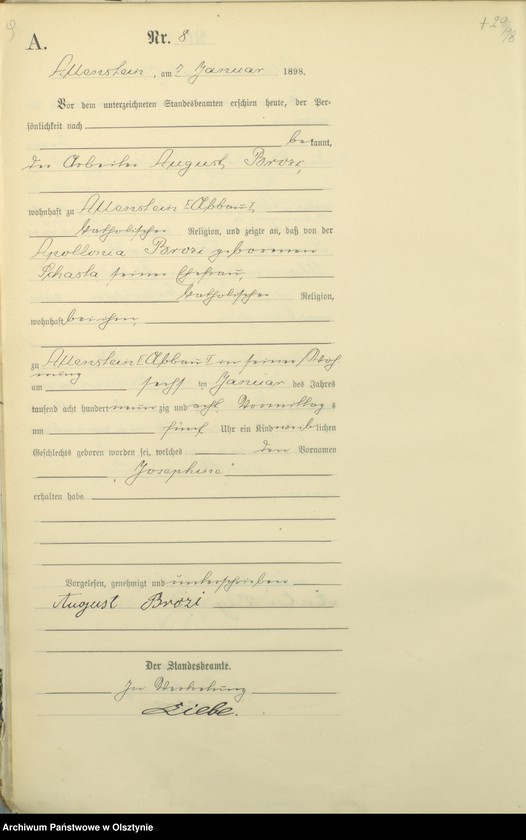 9
+ 29/98
A.
Nr. 8
Allenstein, am 7 Januar 1898.
Vor dem unterzeichneten Standesbeamten erschien heute, der Per-
sönlichkeit nach
bekannt,
der Arbeiter August Brozi,
wohnhaft zu Allenstein Abbau I,
katholischer Religion, und zeigte an, daß von der
Apollonia Brozi geborenen
seiner Ehefrau,
katholischer Religion,
wohnhaft bei ihm,
zu Allenstein Abbau I in seiner Woh
nung
am sechs ten Januar des Jahres
tausend acht hundert neun zig und acht Vormittags
um fünf Uhr ein Kind weiblichen
Geschlechts geboren worden sei, welches den Vornamen
„Josephine"
erhalten habe
Vorgelesen, genehmigt und unterschrieben
August Brozi
Der Standesbeamte.
In Vertretung
Liebe.
Archiwum Państwowe w Olsztynie